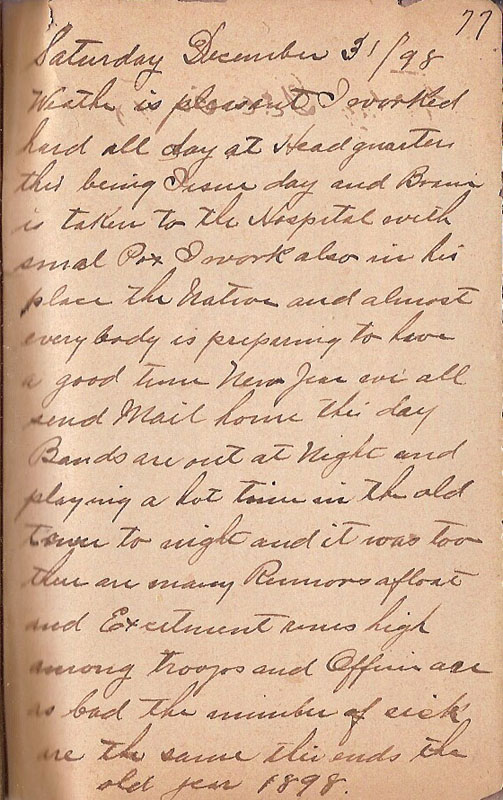 77
Saturday December 31/98
Weather is pleasant I worked
hard all day at Headquarters
this being Issue day and
is taken to the Hospital with
smal Pox I work also in his
place the Native and almost
every body is preparing to have
a good time New Year we all
send Mail home this day
Bands are out at Night and
playing a hot time in the old
town to night and it was too
there are many Rumors afloat
and Excitment runs high
among troops and Officers are
as bad the number of sick
are the same this ends the
old year 1898.